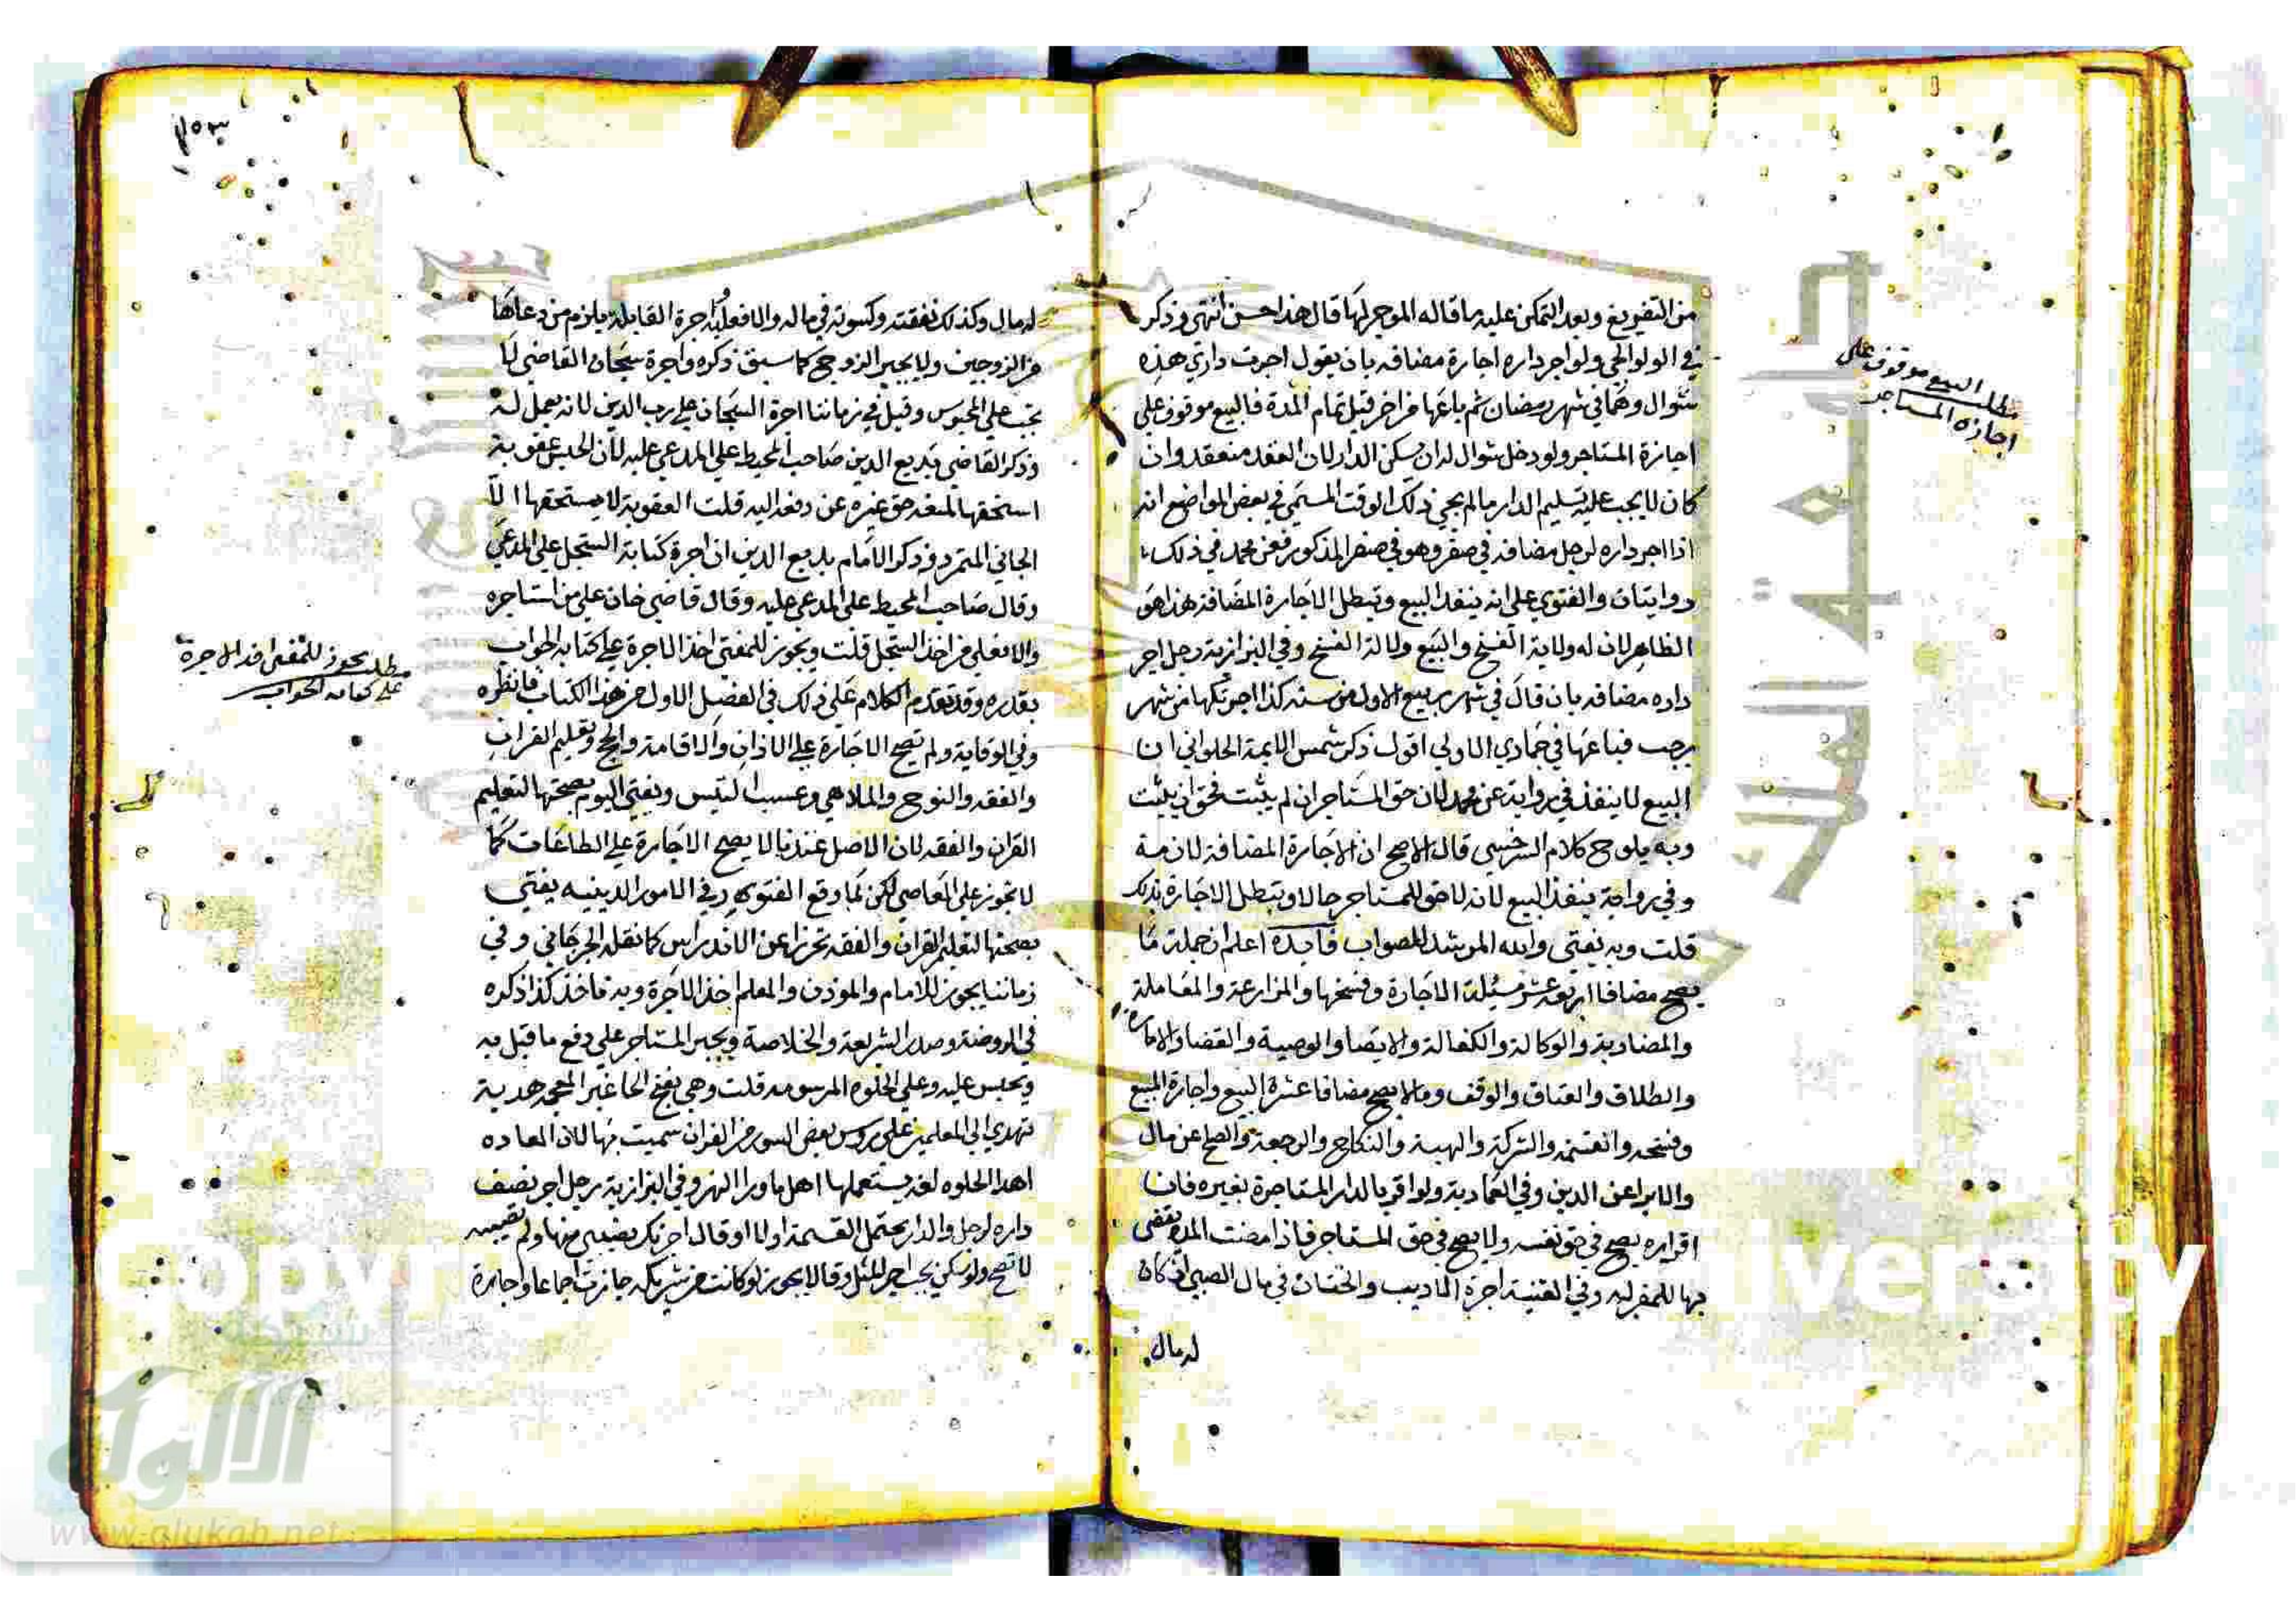 من التفريغ وبعد التمكن عليه ما قاله الموجر لها قال هذا حسن انتهى وذكر
في الولوالجي ولو اجر داره اجارة مضافه بان يقول اجرت داري هذه
شوال وهما في شهر رمضان ثم باعها من اخر قبل تمام المدة فالبيع موقوف على
اجازة المستاجر ولو دخل شوال له ان يسكن الدار لان العقد منعقد وان
كان لا يجب عليه تسليم الدار ما لم يجي ذلك الوقت المسمى في بعض المواضع انه
اذا اجر داره لرجل مضافه في صفر وهو في صفر المذكور فعن محمد في ذلك
روايتان والفتوى على انه ينفذ البيع وتبطل الاجارة المضافة هذا هو
الظاهر لان له ولاية الفسخ والبيع دلالة الفسخ وفي البزازية رجل اجر
داره مضافه بان قال في شهر ربيع الاول من سنه كذا اجرتكها من شهر
رجب فباعها في جمادي الاولي اقول ذكر شمس الايمة الحلواني ان
البيع لا ينفذ في رواية عن محمد لان حق المستاجر ان لم يثبت فحق ان يثبت
وبه يلوح كلام السرخسي قال الاصح ان الاجارة المضافة لازمة
وفي رواية ينفذ البيع لانه لا حق للمستاجر حالا وتبطل الاجارة بذلك
قلت وبه يفتي والله المرشد للصواب فايدة اعلم ان جملة ما
يصح مضافا اربعة عشر مسئلة الاجارة وفسخها والمزارعة والمعاملة
والمضاربة والوكالة والكفالة والايصا والوصية والقضا والامارة
والطلاق والعتاق والوقف وما لا يصح مضافا عشرة البيع واجازة البيع
وفسخه والقسمة والشركة والهبة والنكاح والرجعة والصلح عن مال
والابرا عن الدين وفي العمادية ولو اقر بالدار المستاجرة لغيره فان
اقراره يصح في حق نفسه ولا يصح في حق المستاجر فاذا مضت المدة يقضى
بها للمقر له وفي القنية اجرة التاديب والختان في مال الصبي ان كان
له مال
مطلب البيع موقوف على
اجازه المستاجر
له مال وكذلك نفقته وكسوته في ماله والا فعلي ابيه واجرة القابلة يلزم من دعاها
من الزوجين ولا يجبر الزوج كما سبق ذكره واجرة سجان القاضي لا
تجب على المحبوس وقيل في زماننا اجرة السجان على رب الدين لانه يعمل له
وذكر القاضي بديع الدين صاحب المحيط على المدعي عليه لان الحبس عقوبة
استحقها لمنعه حق غيره عن دفعه اليه قلت العقوبة لا يستحقها الا
الجاني المتمرد وذكر الامام بديع الدين ان اجرة كتابة السجل على المدعي
وقال صاحب المحيط على المدعي عليه وقال قاضي خان على من استاجره
والا فعلي من اخذ السجل قلت ويجوز للمفتي اخذ الاجرة على كتابه الجواب
بقدره وقد تقدم الكلام على ذلك في الفصل الاول من هذا الكتاب فانظره
وفي الوقاية ولم تصح الاجارة على الاذان والاقامة والحج وتعليم القران
والفقه والنوح والملاهي وعسب التيس ويفتي اليوم بصحتها لتعليم
القران والفقه لان الاصل عندنا لا يصح الاجارة على الطاعات كما
لا تجوز على المعاصي لكن لما وقع الفتور في الامور الدينيه يفتي
بصحتها لتعليم القران والفقه تحرزا عن الاندراس كما نقله الجرجاني وفي
زماننا يجوز للامام والموذن والمعلم اخذ الاجرة وبه ناخذ كذا ذكره
في الروضة وصدر الشريعة والخلاصة ويجبر المستاجر على دفع ما قبل به
ويحبس عليه وعلي الحلوه المرسومه قلت وهي بفتح الحا غير المعجمه هدية
تهدي الى المعلمين على روس بعض السور من القران سميت بها لان العاده
اهدا الحلوه لغه يستعملها اهل ما ورا النهر وفي البزازية رجل اجر نصف
داره لرجل والدار يحتمل القسمة اولا او قال اجرتك نصيبي منها ولم نصيبه
لا تصح ولو سكن يجب اجر المثل وقالا يجوز لو كانت من شريكه جازت اجماعا واجارة
مطلب يجوز للمفتي اخذ الاجرة
على كتابه الجواب
شبكة
الألوكة
www.alukah.net